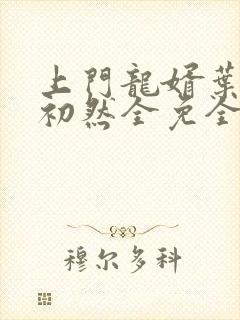 上門龍婿葉
初然全免全
穆尔多科